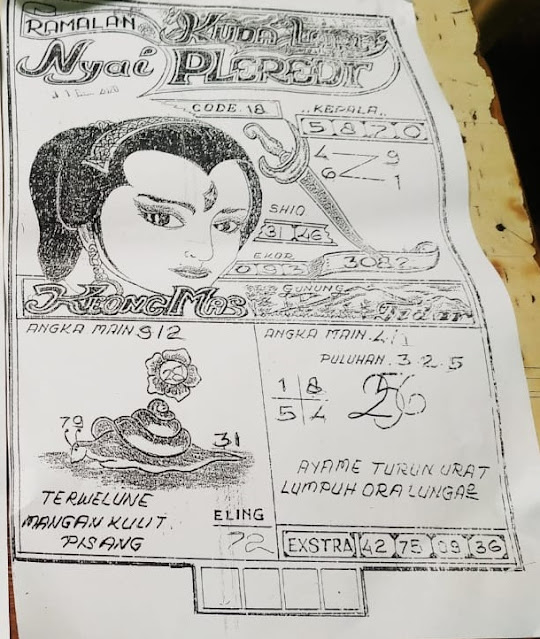 RAMALAN
KUDA
Nyai PLEREDT
CODE. 18
..KEPALA..
5 8 7 0
4 9
6 1
SHIO
31 46
EKOR
0 9 3
308?
KEONG MAS
GUNUNG
Tidar
ANGKA MAIN 912
79
31
TERWELUNE
MANGAN KULIT
PISANG
ELING
72
ANGKA MAIN. 4/1
PULUHAN. 3.2.5
1 8
5 4
AYAME TURUN URAT
LUMPUH ORA LUNGAE
EXSTRA 42 75 09 36